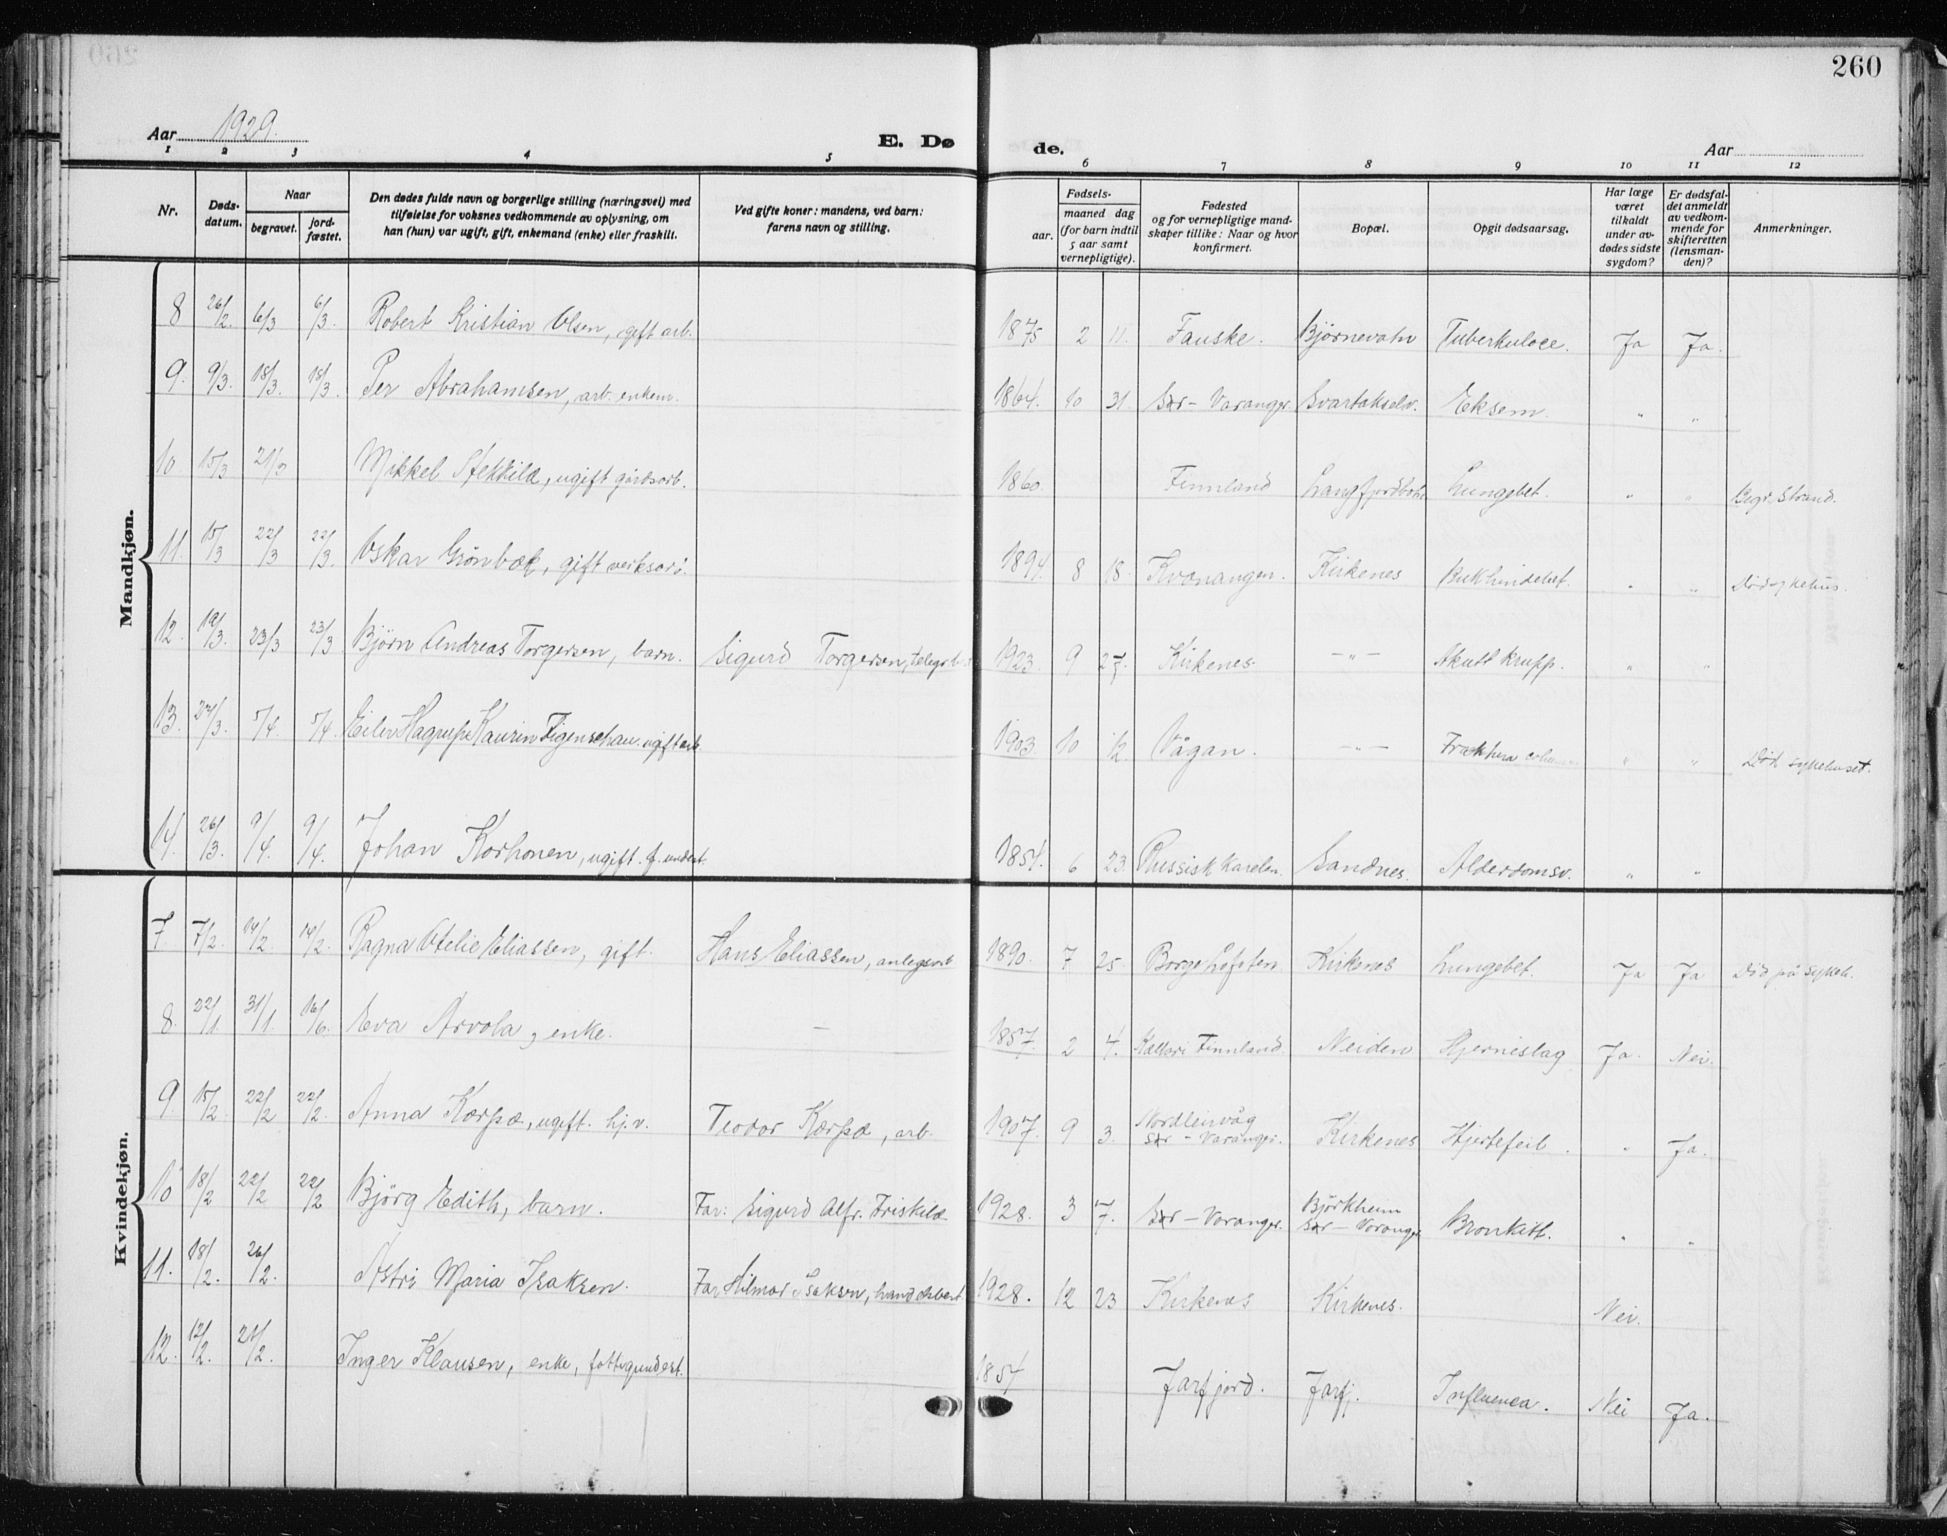 260
Aar 1929.
E. Døde.
Aar
1 2 3 4 5 6 7 8 9 10 11 12
Nr.
Døds-
datum.
Naar
begravet.
jord-
fæstet.
Den dødes fulde navn og borgerlige stilling (næringsvei) med
tilføielse for voksnes vedkommende av oplysning, om
han (hun) var ugift, gift, enkemand (enke) eller fraskilt.
Ved gifte koner: mandens, ved barn:
farens navn og stilling.
Fødsels-
aar.
maaned dag
(for barn indtil
5 aar samt
vernepligtige).
Fødested
og for vernepligtige mand-
skaper tillike: Naar og hvor
konfirmert.
Bopæl.
Opgit dødsaarsag.
Har læge
været
tilkaldt
under av-
dødes sidste
sygdom?
Er dødsfal-
det anmeldt
av vedkom-
mende for
skifteretten
(lensman-
den)?
Anmerkninger.
Mandkjøn.
8 26/2. 6/3 6/3. Robert Kristian Olsen, gift arb. 1875 2 11. Fauske. Bjørnevatn Tuberkulose. Ja Ja.
9. 9/3. 18/3. 18/3. Per Abrahamsen, arb. enkem. 1864. 10 31. Sør-Varanger. Svartakselv. Eksem. " "
10 15/3 21/3 Mikkel Stekkilä, ugift gårdsarb. 1860. Finnland Langfjordbotn Lungebet. " " Begr. Strand.
11. 15/3 22/3 22/3. Oskar Grønbæk, gift verksarb. 1894. 8 18. Kvænangen. Kirkenes Bukhindebet. " "
12. 19/3. 23/3 23/3 Bjørn Andreas Torgersen, barn. Sigurd Torgersen, 1923. 9 27. Kirkenes. -"- Akutt krupp. " "
13. 27/3. 5/4 5/4 Eilev Hagrup Kaurin Figenschau. ugift arb. 1903. 10 12. Vågan. -"- " " Død sykehuset.
14. 26/3. 9/4. 9/4. Johan Korhonen, ugift. f. underst. 1854. 6 23. Russisk Karelen. Sandnes. Alderdomsv. " "
Kvindekjøn.
7. 7/2. 14/2. 14/2. Ragna Otelie Eliassen, gift. Hans Eliassen, anlegsarb 1890. 7 25. Borge Lofoten. Kirkenes Lungebet. Ja Ja Død på sykeh.
8. 22/1. 31/1. 16/6. Eva Arvola, enke. — 1857. 2 4. Kollari Finnland. Neiden Hjerneslag Ja. Nei.
9. 15/2. 22/2 22/2. Anna Kærpæ, ugift. hj.v. Teodor Kærpæ, arb. 1907. 9 3. Nordleirvåg
Sør-Varanger. Kirkenes Hjertefeil. " Ja.
10 18/2 22/2 22/2 Bjørg Edith, barn. Far: Sigurd Alfr. Friskilæ. 1928. 3 7. Sør-Varanger. Bjørkheim
Sør-Varanger Bronkitt. " "
11. 18/2. 26/2. Astri Maria Isaksen. Far Hilmar Isaksen, 1928. 12 23 Kirkenes Kirkenes. Nei.
12. 12/2. 21/2. Inger Klausen, enke, fattigunderst. 1854 Jarfjord. Jarfj. Influensa. Nei Ja.